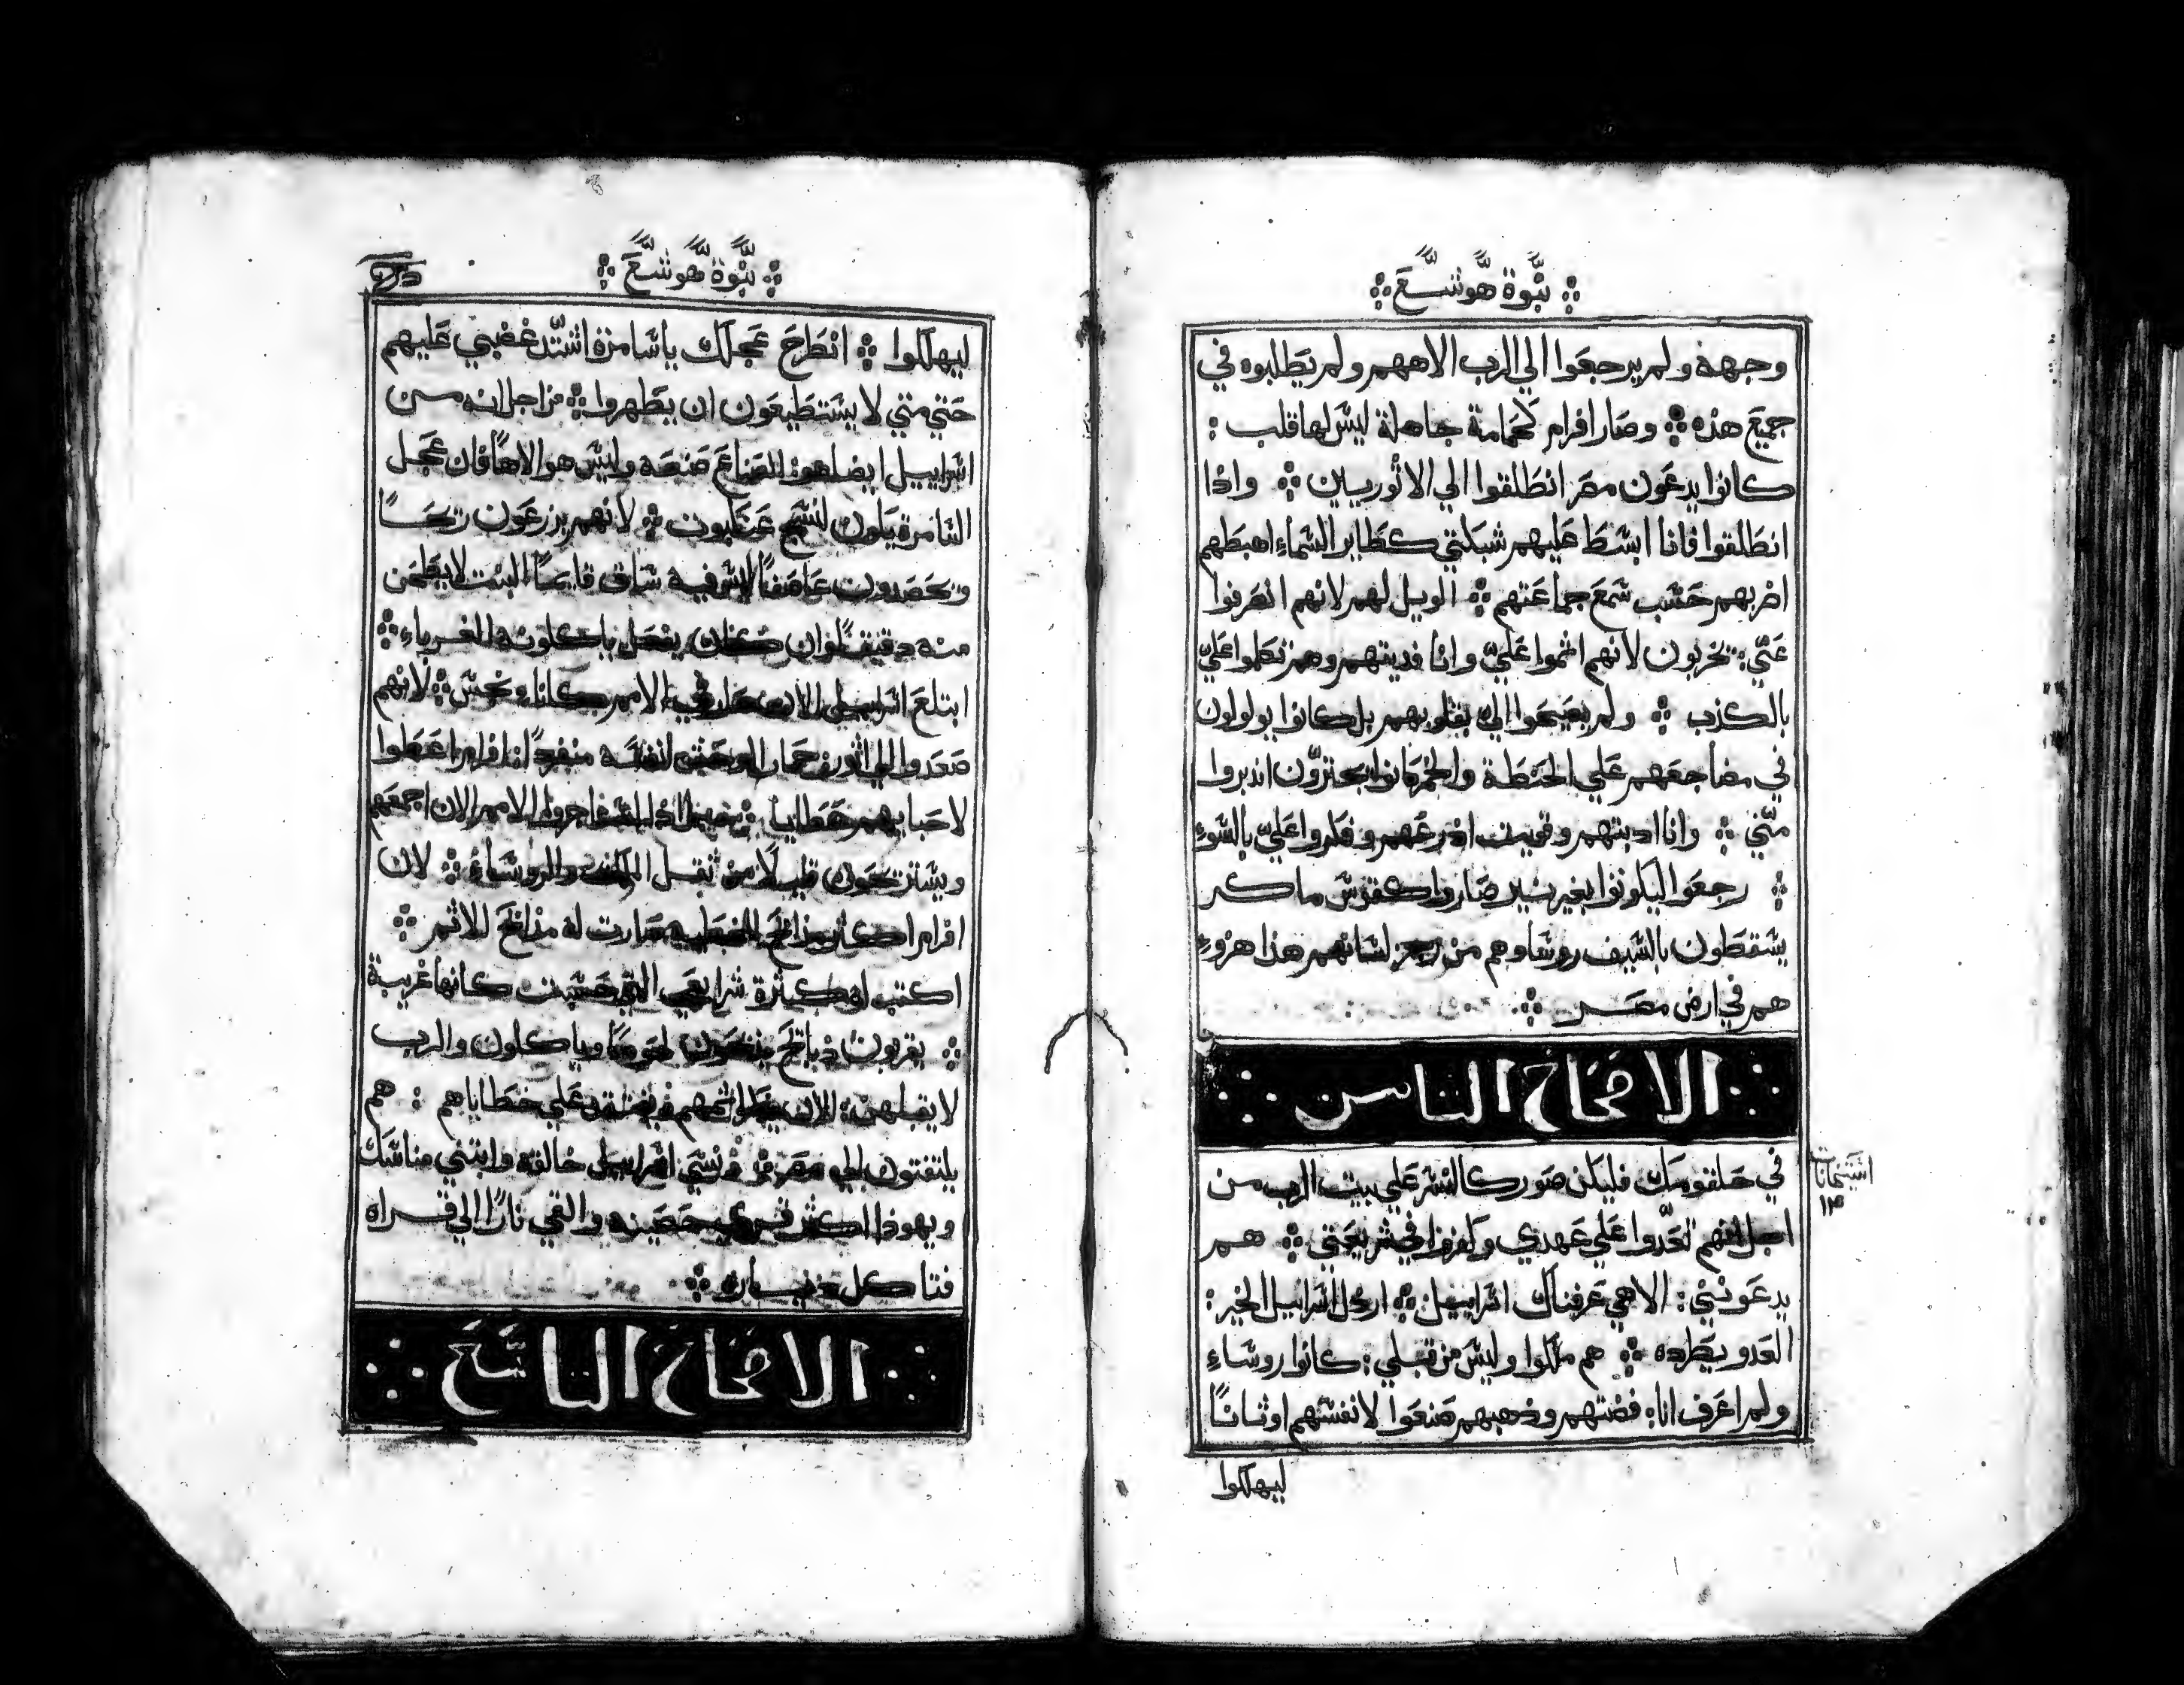 نبوة هوشع
وجهة ولم يرجعوا الي الرب الاههم ولم يطلبوه في
جميع هذه ۞ وصار افرام كحمامة جاهلة ليس لها قلب :
كانوا يدعون مصر انطلقوا الي الاثوريين ۞ واذا
انطلقوا فانا ابسط عليهم شبكتي كطاير السماء اهبطهم
اضربهم حسب سمع جماعتهم ۞ الويل لهم لانهم انصرفوا
عني : يخربون لانهم اثموا علي وانا فديتهم وهم تكلموا علي
بالكذب ۞ ولم يصيحوا الي بقلوبهم بل كانوا يولولون
في مضاجعهم علي الحنطة والخمر كانوا يجترون اندبروا
مني ۞ وانا ادبتهم وقويت اذرعهم وفكروا علي بالسوء
۞ رجعوا ليكونوا بغير نير صاروا كقوس ماكر
يسقطون بالسيف روساوهم من رجز لسانهم هذا هزوء
هم في ارض مصر ۞
الاصحاح التامن
في حلقومك فليكن صور كالنسر علي بيت الرب من
اجل انهم تعدوا علي عهدي وكفروا في شريعتي ۞ هم
يدعونني : الاهي عرفناك اسراييل ۞ ارذل اسراييل الخير :
العدو يطرده ۞ هم ملكوا وليس من قبلي : كانوا روساء
ولم اعرف انا : فضتهم وذهبهم صنعوا لانفسهم اوثانا
ليهلكوا
نبوة هوشع
ليهلكوا ۞ انطرح عجلك ياسامرة اشتد غضبي عليهم
حتي متي لا يستطيعون ان يطهروا ۞ من اجل انه من
اسراييل ايضا هو : الصانع صنعه وليس هو الاها فان عجل
السامرة يكون لنسج عنكبوت ۞ لانهم يزرعون ريحا
ويحصدون عاصفا ليس فيه ساق قايما البنت لا يطحن
منه دقيق وان كان يفعل ياكلونه الغرباء ۞
ابتلع اسراييل الان صار في الامم كانا نجس ۞ لانهم
صعدوا الي اثور حمار الوحش لنفسه منفردا افرام اعطوا
لاحبايهم عطايا : اجروا الامم الان اجمعهم
ويستريحون قليلا من ثقل الملك والروساء ۞ لان
افرام اكثر مذابح للخطيه صارت له مذابح للاثم ۞
اكتب له كثرة شرايعي التي حسبت كانها غريبة
۞ يقربون ذبايح يذبحون لحوما وياكلون والرب
لا يقبلهن : الان يذكر اثمهم ويفتقد علي خطاياهم : هم
يلتفتون الي مصر ۞ ونسي اسراييل خالقه وابتني مناسك
ويهوذا اكثر قري حصينه والقي نارا الي قراه
فتاكل
الاصحاح التاسع